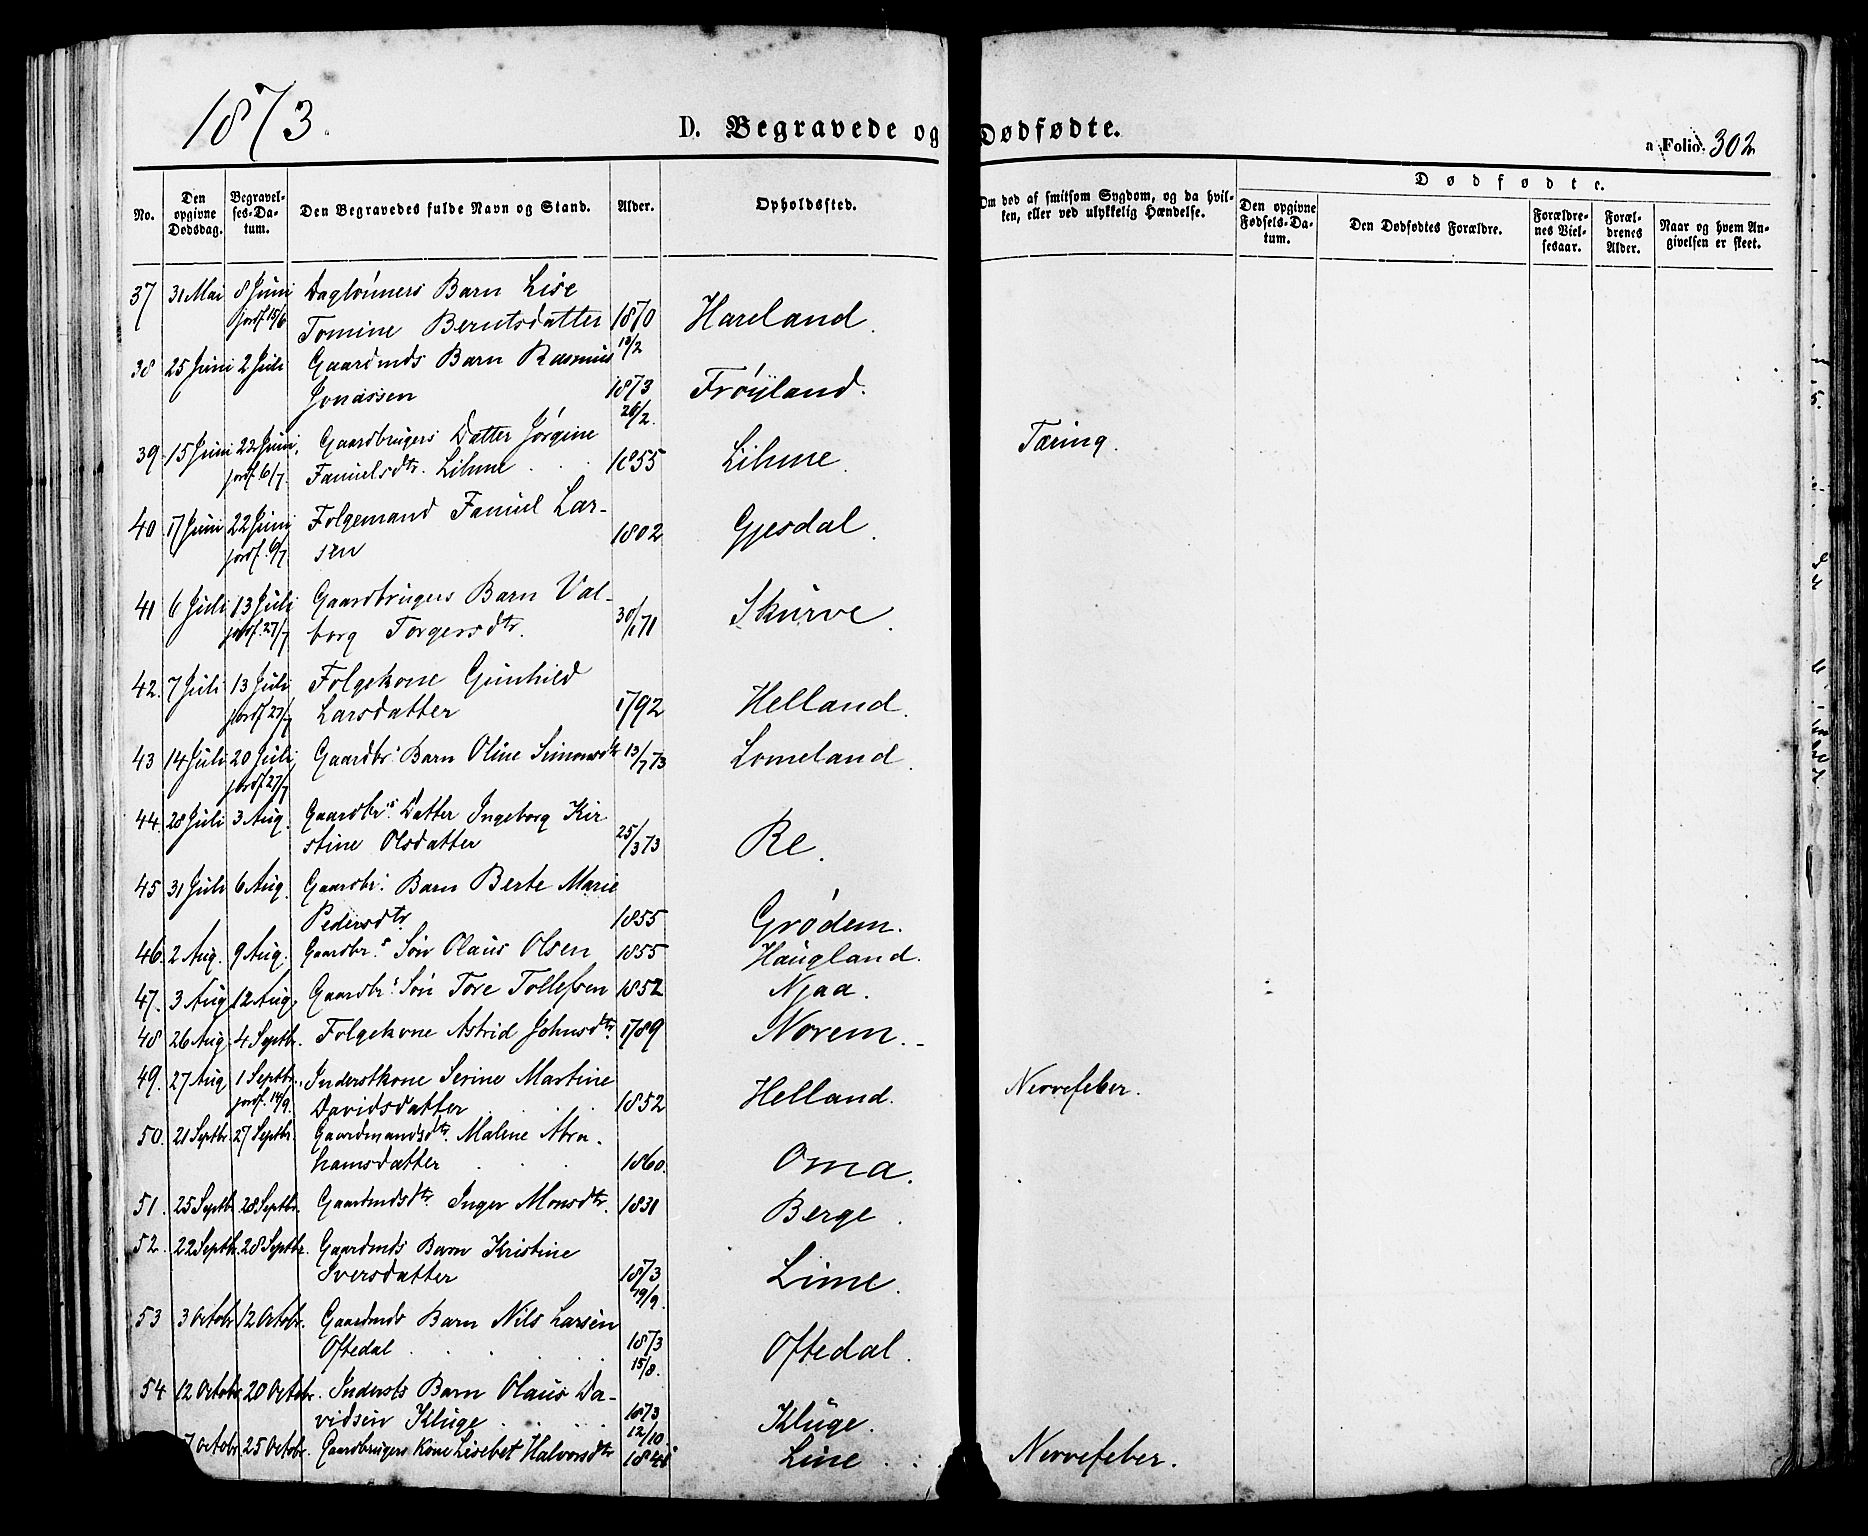 1873.
D. Begravede og Dødfødte.
a Folio. 302
No.
Den opgivne Dødsdag.
Begravelses-Datum.
Den Begravedes fulde Navn og Stand.
Alder.
Opholdssted.
Om død af smitsom Sygdom, og da hvilken, eller ved ulykkelig Hændelse.
Dødfødte.
Den opgivne Fødsels-Datum.
Den Dødfødtes Forældre.
Forældrenes Vielsesaar.
Forældrenes Alder.
Naar og hvem Angivelsen er skeet.
37 31 Mai 8 Juni Daglönners Barn Lise
jordf. 15/6 Tomine Berntsdatter 1870 Hareland.
13/2
38 25 Juni 2 Juli Gaardmds Barn Rasmus
Jonassen 1873 Fröyland.
26/2.
39. 15 Juni 22 Juni, Gaardbrugers Datter Jörgine Tæring.
jordf. 6/7. Samuelsdtr. Lihme 1855 Lihme.
40. 17 Juni 22 Juni Folgemand Samuel Lar-
jordf. 6/7. sen 1802 Gjesdal.
41 6 Juli 13 Juli Gaardbrugers Barn Val-
jordf. 27/7 borg Torgersdtr. 30/1 71 Skurve.
42. 7 Juli 13 Juli Folgekone Gunhild
jordf 27/7 Larsdatter 1792 Helland.
43 14 Juli 20 Juli Gaardbr.s Barn Oline Simonsdtr 13/7 73 Lomeland.
jordf 27/7
44. 28 Juli 3 Aug. Gaardbr.s Datter Ingeborg Kir
stine Olsdatter 25/3 73 Re.
45 31 Juli 6 Aug. Gaardbr. Barn Berte Marie
Pedersdtr. 1855 Grödem.
46. 2 Aug. 9 Aug. Gaardbr.s Sön Olaus Olsen 1855 Haugland.
47. 3 Aug 12 Aug. Gaardbr.s Sön Tore Tollefsen 1852 Njaa.
48 26 Aug. 4 Septbr. Folgekone Astrid Johnsdtr. 1789 Norem.
49. 27 Aug 1 Septbr. Inderstkone Serine Martine Nervefeber.
jordf. 14/9. Davidsdatter 1852 Helland.
50. 21 Septbr. 27 Septbr. Gaardmandsdtr. Malene Abra-
hamsdatter 1860. Oma.
51. 25 Septb. 28 Septbr. Gaardmdsdtr. Inger Monsdtr. 1831 Berge.
52. 22 Septbr. 28 Septbr. Gaardmds Barn Kristine
Iversdatter 1873 Lime.
19/9.
53 3 Octobr. 12 Octobr. Gaardmds Barn Nils Larsen
Oftedal 1873 Oftedal.
15/8.
54 12 Octobr. 20 Octobr. Indersts Barn Olaus Da-
vidsen Kluge 1873 Kluge.
12/10
7 Octobr. 25 Octobr. Gaardbrugers Kone Lisebet Halvorsdtr Line Nervefeber.